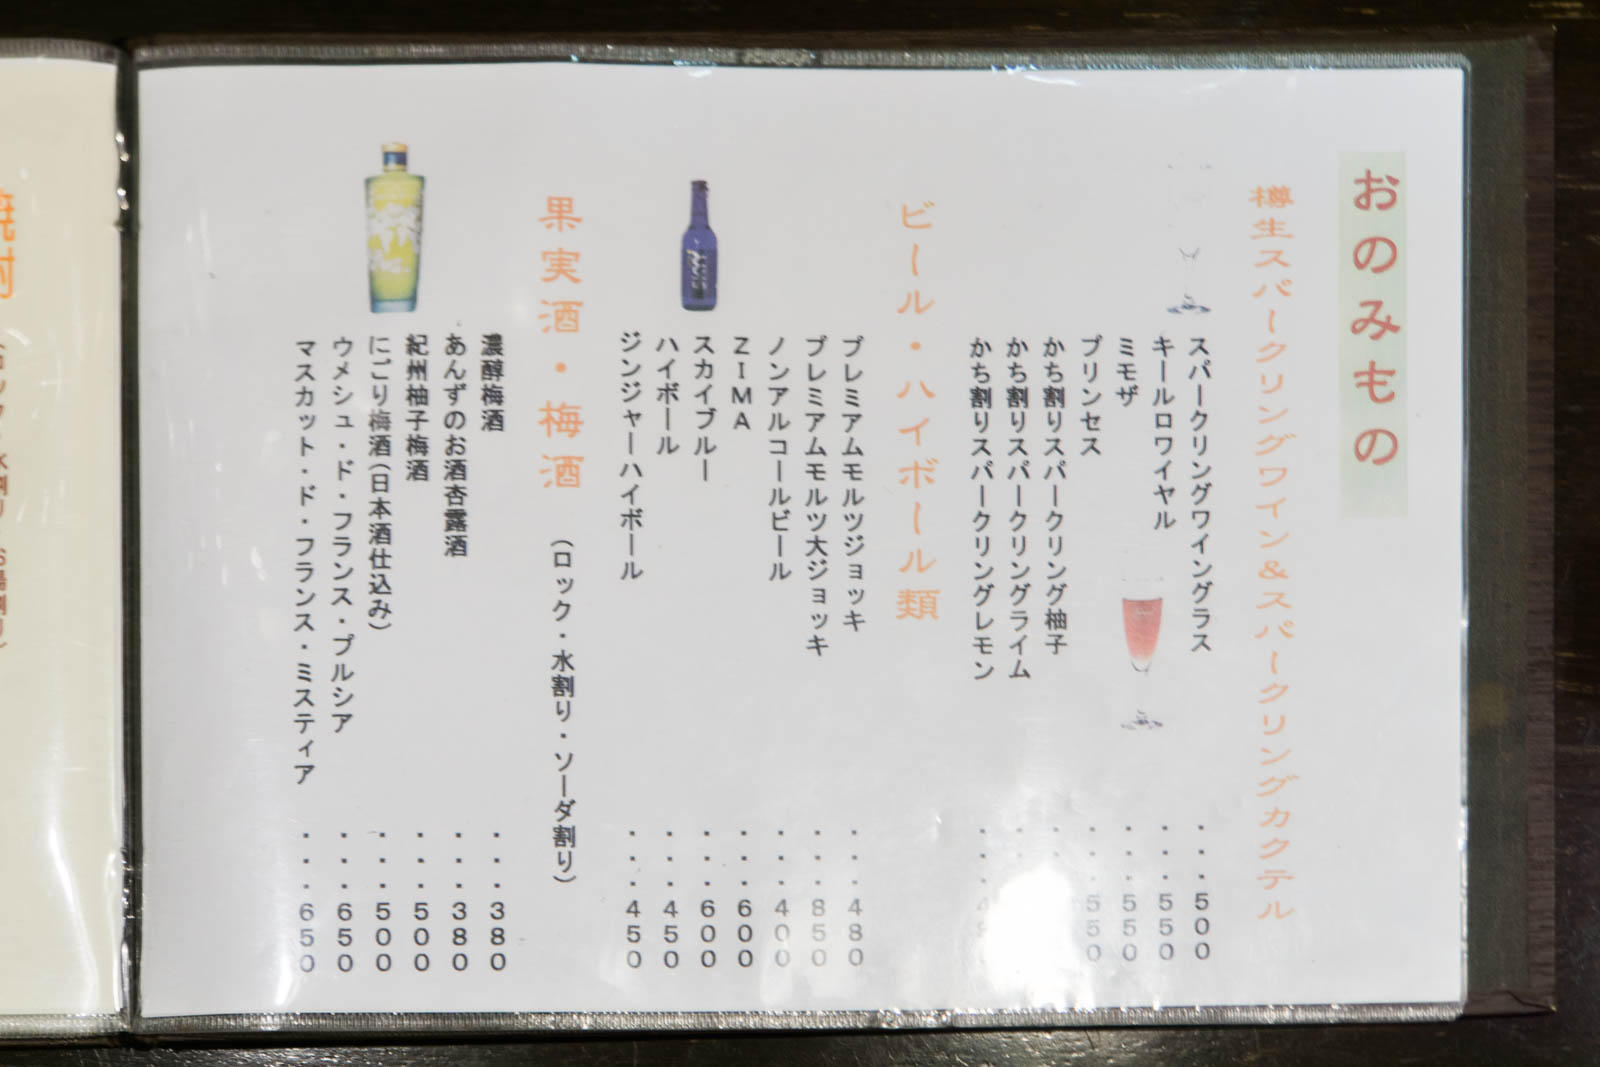 おのみもの
樽生スパークリングワイン&スパークリングカクテル
スパークリングワイングラス ・・・500
キールロワイヤル ・・・550
ミモザ ・・・550
プリンセス ・・・550
かち割りスパークリング柚子
かち割りスパークリングライム
かち割りスパークリングレモン
ビール・ハイボール類
プレミアムモルツジョッキ ・・・480
プレミアムモルツ大ジョッキ ・・・850
ノンアルコールビール ・・・400
ZIMA ・・・600
スカイブルー ・・・600
ハイボール ・・・450
ジンジャーハイボール ・・・450
果実酒・梅酒 (ロック・水割り・ソーダ割り)
濃醇梅酒 ・・・380
あんずのお酒杏露酒 ・・・380
紀州柚子梅酒 ・・・500
にごり梅酒(日本酒仕込み) ・・・500
ウメシュ・ド・フランス・プルシア ・・・650
マスカット・ド・フランス・ミスティア ・・・650
焼酎